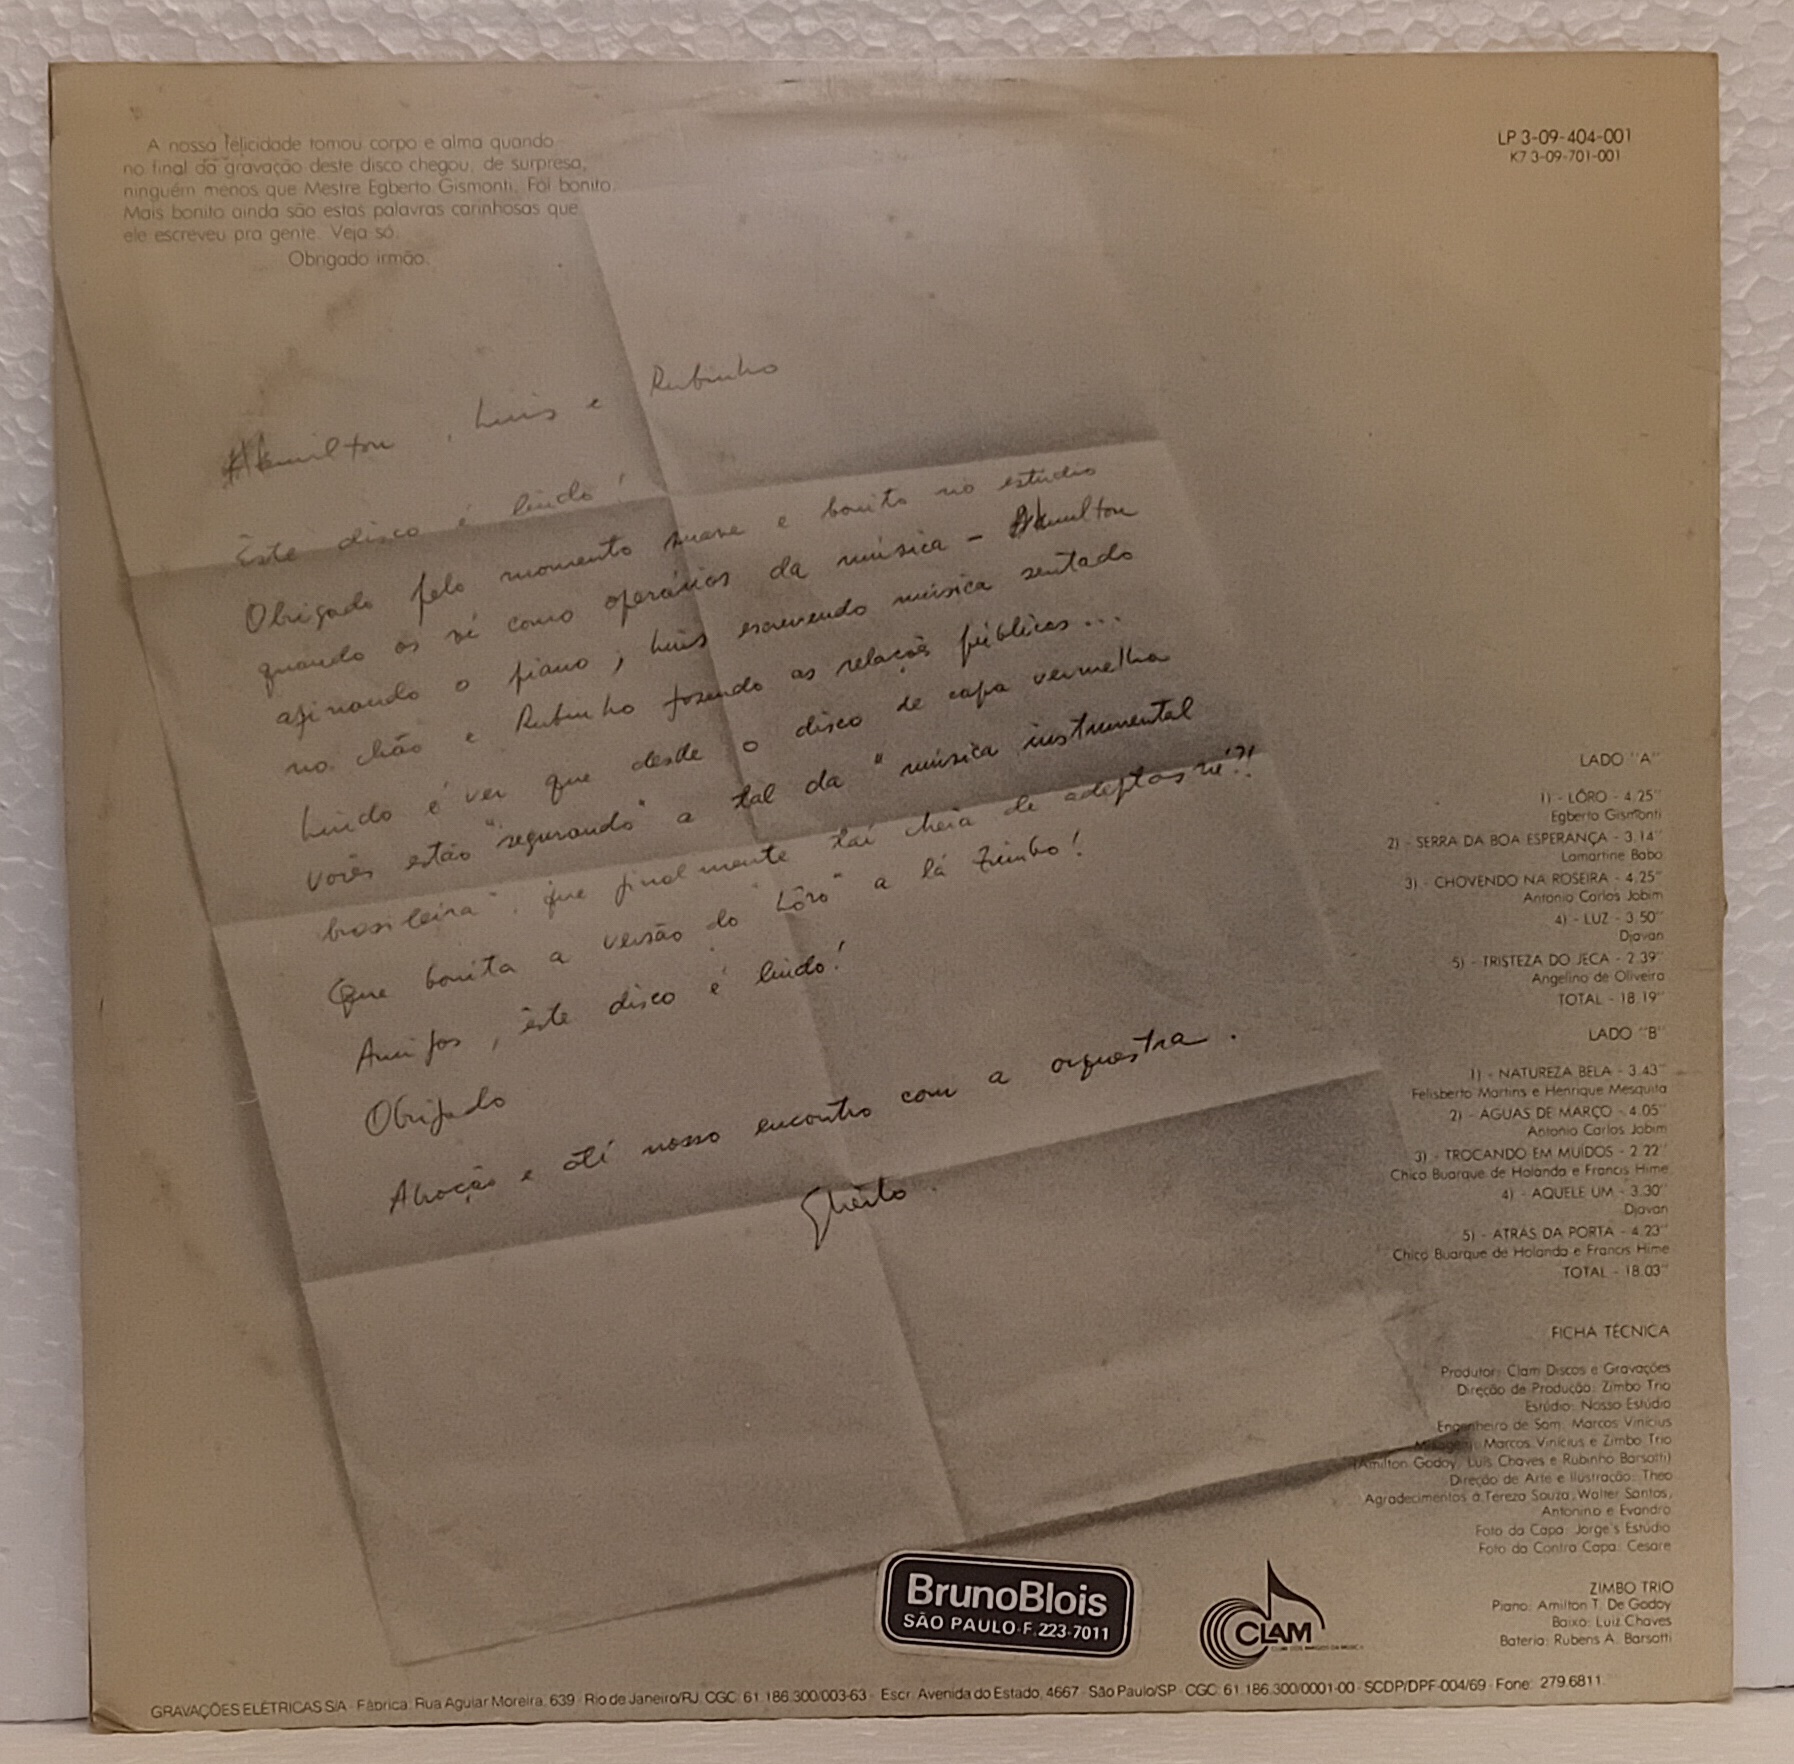 A nossa felicidade tomou corpo e alma quando
no final da gravação deste disco chegou, de surpresa,
ninguém menos que Mestre Egberto Gismonti. Foi bonito.
Mais bonito ainda são estas palavras carinhosas que
ele escreveu pra gente. Veja só.
Obrigado irmão.
LP 3-09-404-001
K7 3-09-701-001
Hamilton, Luis e Rubinho
Êste disco é lindo!
Obrigado pelo momento suave e bonito no estúdio
quando os vi como operários da música - Hamilton
afinando o piano, Luis escrevendo música sentado
no chão e Rubinho fazendo as relações públicas...
Lindo é ver que desde o disco de capa vermelha
vocês estão "segurando" a tal da "música instrumental
brasileira", que finalmente taí cheia de adeptos né?!
Que bonita a versão do "Lôro" a lá Zimbo!
Amigos, êste disco é lindo!
Obrigado
Abração e até nosso encontro com a orquestra.
Egberto.
LADO "A"
1) - LÔRO - 4.25"
Egberto Gismonti
2) - SERRA DA BOA ESPERANÇA - 3.14"
Lamartine Babo
3) - CHOVENDO NA ROSEIRA - 4.25"
Antonio Carlos Jobim
4) - LUZ - 3.50"
Djavan
5) - TRISTEZA DO JECA - 2.39"
Angelino de Oliveira
TOTAL - 18.19"
LADO "B"
1) - NATUREZA BELA - 3.43"
Felisberto Martins e Henrique Mesquita
2) - ÁGUAS DE MARÇO - 4.05"
Antonio Carlos Jobim
3) - TROCANDO EM MUÍDOS - 2.22"
Chico Buarque de Holanda e Francis Hime
4) - AQUELE UM - 3.30"
Djavan
5) - ATRÁS DA PORTA - 4.23"
Chico Buarque de Holanda e Francis Hime
TOTAL - 18.03"
FICHA TÉCNICA
Produtor: Clam Discos e Gravações
Direção de Produção: Zimbo Trio
Estúdio: Nosso Estúdio
Engenheiro de Som: Marcos Vinícius
Mixagem: Marcos Vinícius e Zimbo Trio
(Amilton Godoy, Luís Chaves e Rubinho Barsotti)
Direção de Arte e Ilustração: Theo
Agradecimentos à Tereza Souza, Walter Santos,
Antonino e Evandro
Foto da Capa: Jorge's Estúdio
Foto da Contra Capa: Cesare
ZIMBO TRIO
Piano: Amilton T. De Godoy
Baixo: Luiz Chaves
Bateria: Rubens A. Barsotti
BrunoBlois
SÃO PAULO-F.223-7011
CLAM
CLUBE DOS AMIGOS DA MÚSICA
GRAVAÇÕES ELÉTRICAS S/A - Fábrica: Rua Aguiar Moreira, 639 - Rio de Janeiro/RJ. CGC: 61.186.300/003-63 - Escr. Avenida do Estado, 4667 - São Paulo/SP - CGC: 61.186.300/0001-00 - SCDP/DPF-004/69 - Fone: 279.6811.